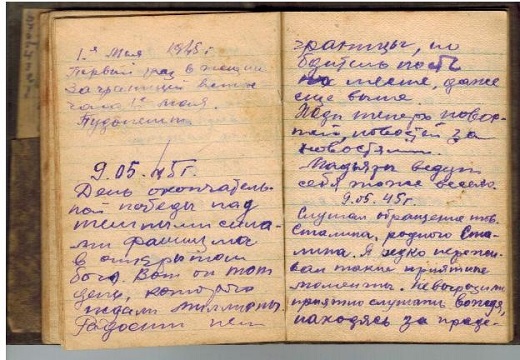 1.я Мая 1945 г.
Первый раз в жизни
за границей встре
чаю 1е мая.
Будапешт
9.05.45г.
День окончатель-
ной победы над
темными сила-
ми фашизма
в открытом
бою. Вот он тот
день, которого
ждали миллионы.
Радости нет
границы, но
бдительность
на месте, даже
еще выше.
Жди теперь новос-
тей, новостей за
новостями.
Мадьяры ведут
себя тоже весело.
9.05.45г.
Слушал обращение тов.
Сталина, родного Ста-
лина. Я редко пережи-
вал такие приятные
моменты.
приятно слушать вождя,
находясь за преде-